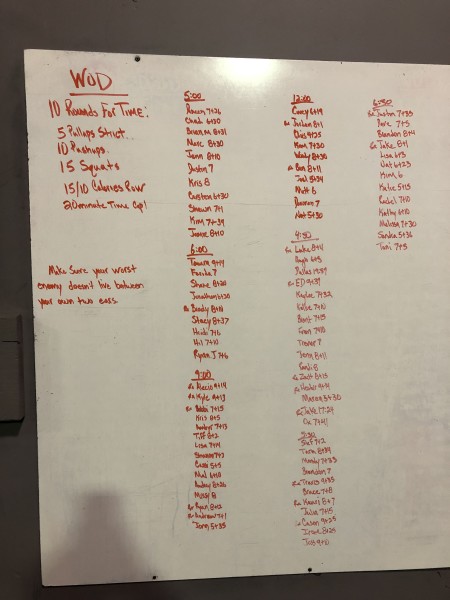 WOD
10 Rounds For Time:
5 Pullups Strict
10 Pushups
15 Squats
15/10 Calories Row
20 minute Time Cap!
Make Sure your worst
enemy doesn't live between
your own two ears
5:00
Raven 7+26
Chad 6+30
Brian M 8+31
Marc 8+30
Jenn 8+10
Dustin 7
Kris 8
Carsten 6+30
Shawn 7+1
Kim 7+39
Jesse 8+10
6:00
Tamara 9+4
Farrika 7
Shane 8+20
Jonathan 6+30
Rx Brady 8+10
Stacy 8+37
Heidi 7+6
Hil 7+10
Ryan J 7+6
9:00
Rx Alecia 9+14
Rx Kyle 9+13
Rx Bobbi 7+15
Kris 8+5
Tiff 8+2
Lisa 7+4
Shannon 7+7
Cassi 5+5
Hal 6+10
Audrey 8+26
Missy 8
Rx Ryan 8+2
Rx Andrew 7+1
Jenn 5+35
12:00
Corey 6+19
Rx Jordan 8+1
Chris 9+25
Kim 7+20
Wendy 8+30
Rx Ben 8+11
Joel 5+34
Matt 6
Donnie 7
Nat 5+30
4:30
Rx Luke 8+4
Steph 6+5
Dallas
Rx ED 9+39
Kaylee 7+32
Katie 7+10
Brent 7+15
Fran 7+10
Trevor 7
Jenn 8+11
Kandi 8
Rx Zach 8+13
Rx Heather 9+4
Mason 3+30
Rx Jake 17:24
Cat 7+41
5:30
Steff 7+2
Tara 8+34
Mandy 7+33
Brandon 7
Rx Travis 9+35
Bruce 7+8
Rx Kamri 8+7
Julia 7+15
Rx Cason 9+25
Irene 8+25
Tess 9+0
6:30
Rx Justin 7+33
Dave 7+5
Brandon 8+4
Rx Jake 8+1
Lisa 6+3
Nat 6+23
Kim 6
Katie 5+15
Rachel 7+10
Kathy 6+10
Melissa 7+30
Sandra 5+36
Toni 7+5